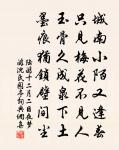 城南小陌又逢春
只見梅花不見人
玉骨久成泉下土
墨痕猶鎖壁間塵
陸游十二月二日夜夢
游沈氏園亭